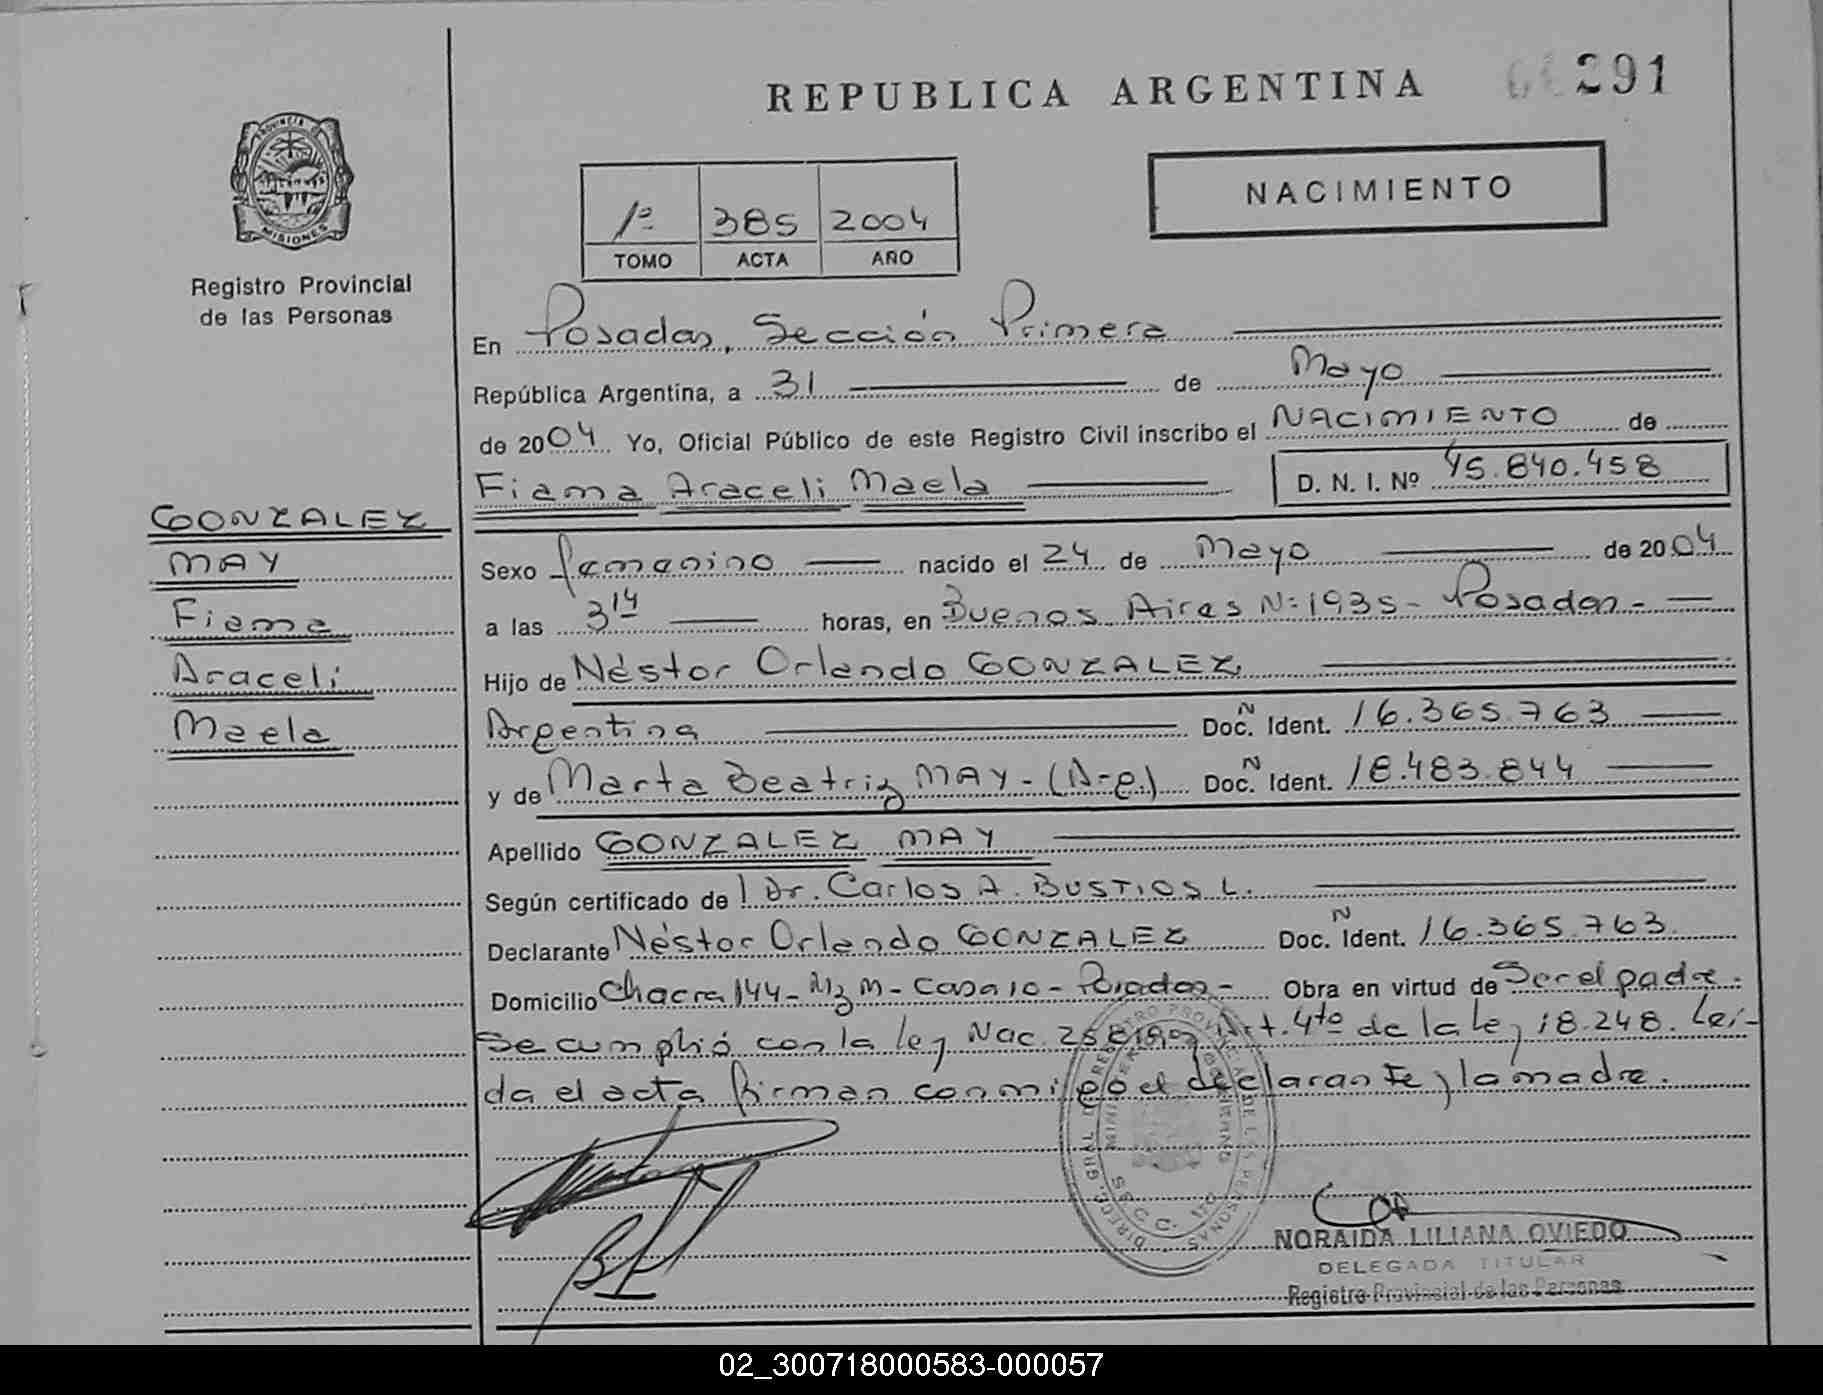 REPUBLICA ARGENTINA
291
PROVINCIA DE
MISIONES
Registro Provincial
de las Personas
1º 385 2004
TOMO ACTA AÑO
NACIMIENTO
En Posadas, Sección Primera
República Argentina, a 31 de Mayo
de 2004 Yo, Oficial Público de este Registro Civil inscribo el NACIMIENTO de
Fiama Araceli Maela D. N. I. Nº 45.840.458
GONZALEZ
MAY
Fiama
Araceli
Maela
Sexo femenino nacido el 24 de Mayo de 2004
a las 3 14 horas, en Buenos Aires Nº 1935 - Posadas -
Hijo de Néstor Orlando GONZALEZ
Argentina Doc. N Ident. 16.365.763
y de Marta Beatriz MAY - (A-g) Doc. N Ident. 18.483.844
Apellido GONZALEZ MAY
Según certificado de l Dr. Carlos A. BUSTIOS L.
Declarante Néstor Orlando GONZALEZ Doc. N Ident. 16.365.763
Domicilio Chacra 144 - Mz M - Casa 10 - Posadas - Obra en virtud de Ser el padre.
Se cumplió con la ley Nac. Art. 4to de la Ley 18.248. Leí-
da el acta firman conmigo el declarante y la madre.
NORAIDA LILIANA OVIEDO
DELEGADA TITULAR
Registro Provincial de las Personas
02_300718000583-000057